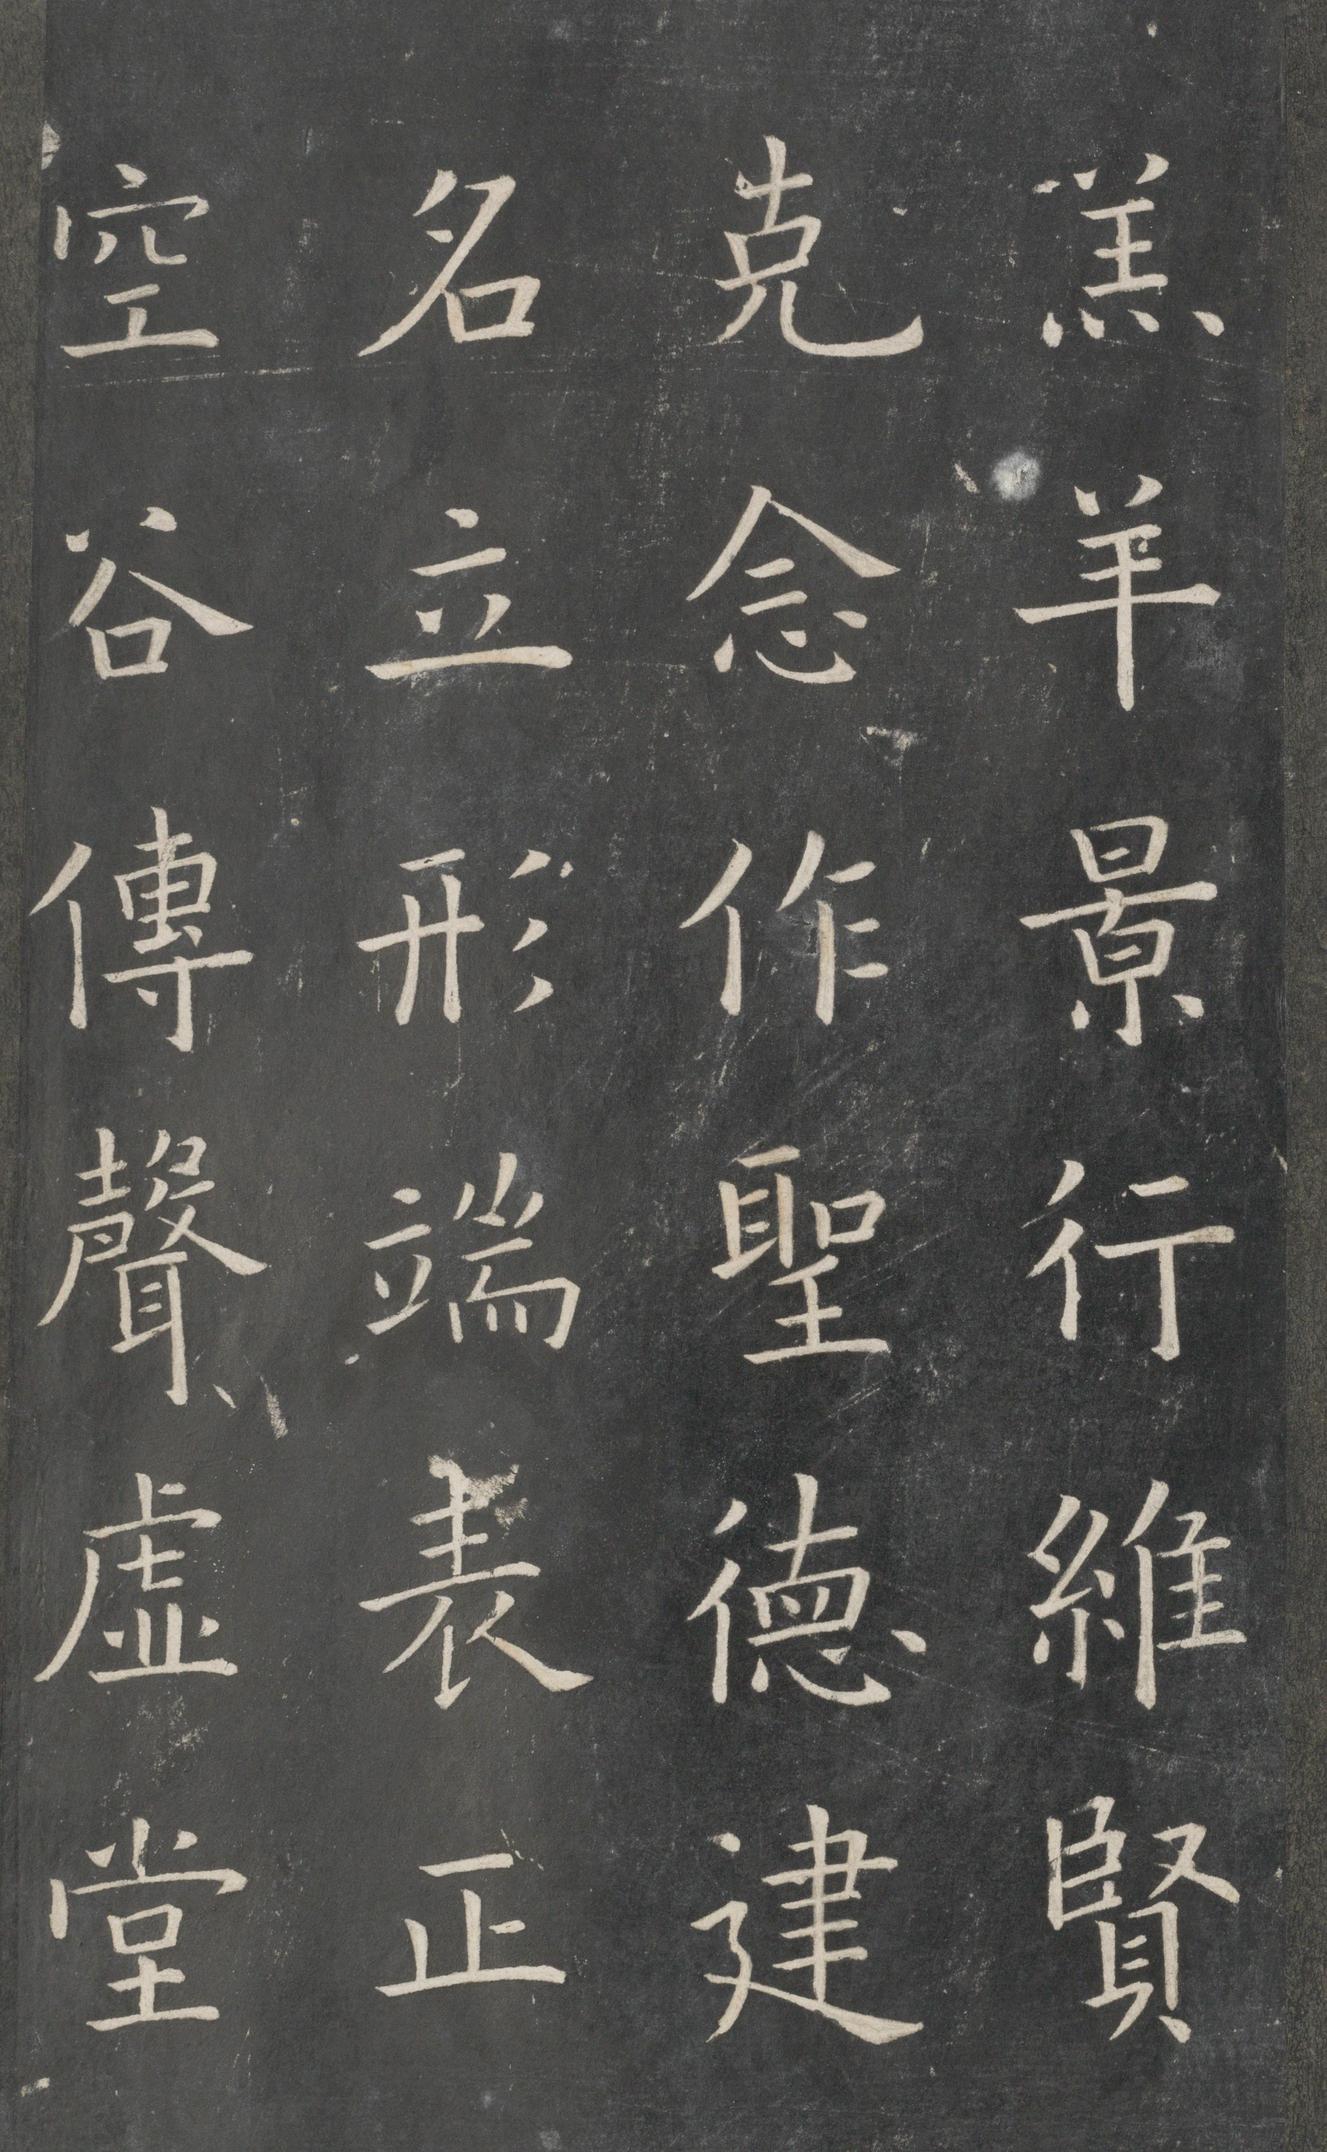 羔羊景行維賢
克念作聖德建
名立形端表正
空谷傳聲虛堂